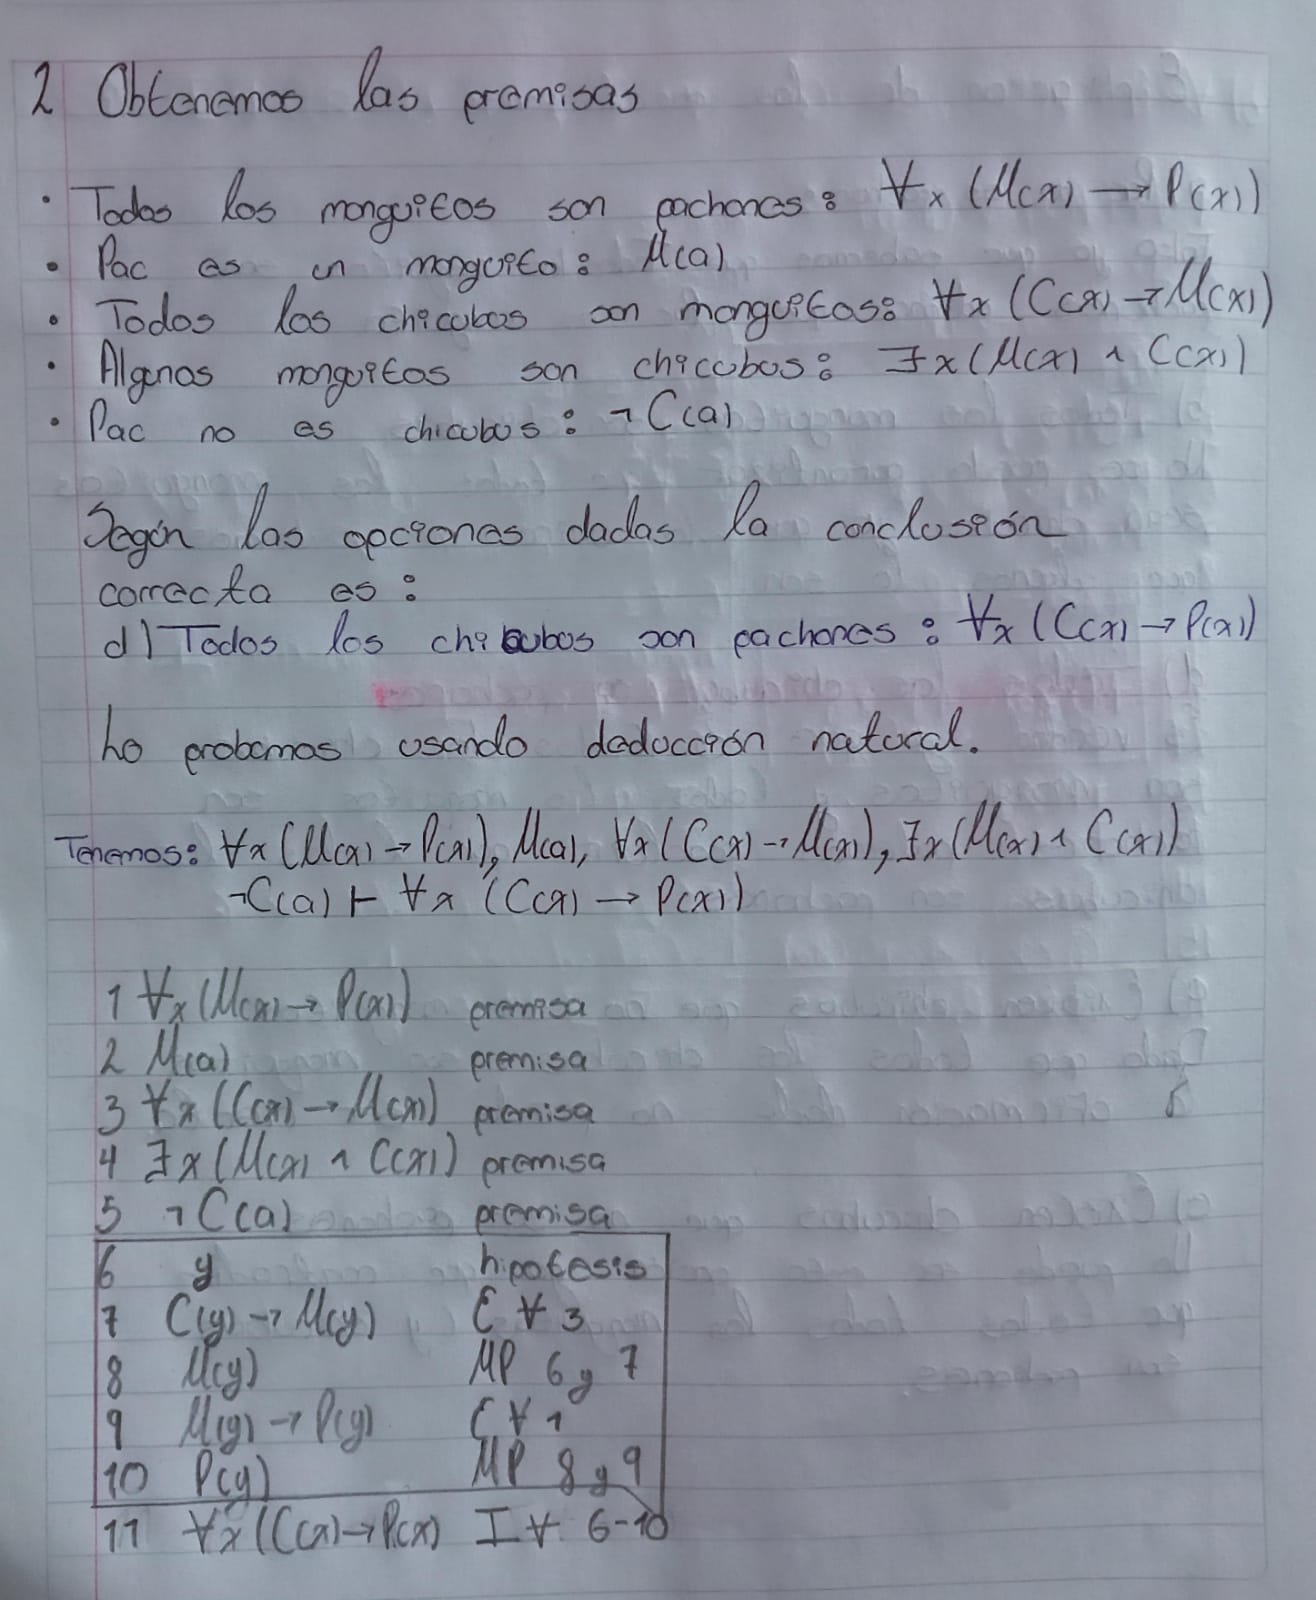 2 Obtenemos las premisas
· Todos los monguitos son pachones: ∀x (M(x) → P(x))
· Pac es un monguito: M(a)
· Todos los chicubos son monguitos: ∀x (C(x) → M(x))
· Algunos monguitos son chicubos: ∃x (M(x) ∧ C(x))
· Pac no es chicubos: ¬C(a)
Según las opciones dadas la conclusión
correcta es:
d) Todos los chicubos son pachones: ∀x (C(x) → P(x))
Lo probamos usando deducción natural.
Tenemos: ∀x (M(x) → P(x)), M(a), ∀x (C(x) → M(x)), ∃x (M(x) ∧ C(x))
¬C(a) ⊢ ∀x (C(x) → P(x))
1 ∀x (M(x) → P(x)) premisa
2 M(a) premisa
3 ∀x (C(x) → M(x)) premisa
4 ∃x (M(x) ∧ C(x)) premisa
5 ¬C(a) premisa
6 y hipotesis
7 C(y) → M(y) E ∀ 3
8 M(y) MP 6 y 7
9 M(y) → P(y) E ∀ 1
10 P(y) MP 8 y 9
11 ∀x (C(x) → P(x) I ∀ 6-10